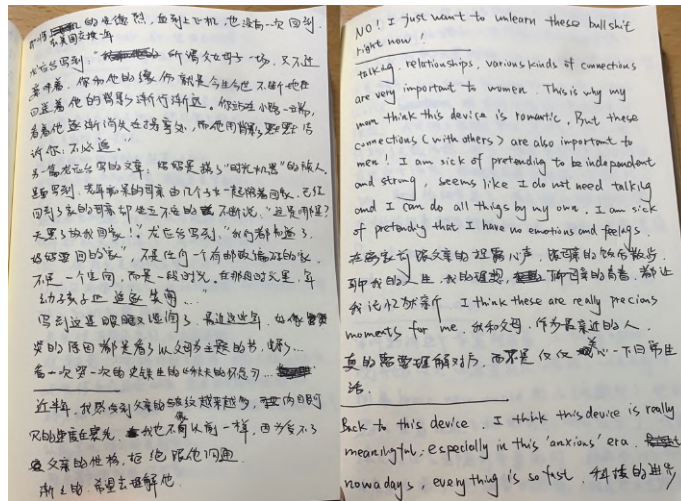 的
去美国交换一年
龙应台写到：“所谓父女母子一场，只不过
意味着，你和他的缘份就是今生今世不断地在
目送着他的背影渐行渐远。你站在小路一端，
看着他逐渐消失在拐弯处，而他用背影默默告
诉你：不必追。”
另一篇龙应台写的文章，妈妈是搭了“时光机器”的旅人。
回到了家的母亲却坐立不安的不断说，“这是哪里？
天黑了放我回家！”龙应台写到，“我们都知道了，
妈妈要回的家”，不是任何一个有邮政编码的家，
不是一个空间，而是一段时光。在那段时光里，年
幼孩子正追逐笑闹…”
写到这里眼睛又湿润了，最近这些年，
哭的原因都是看了以父母为主题的书，电影…
第一次哭一次的史铁生的《秋天的怀念》…
近半年，我感觉到父亲的皱纹越来越多，
我也不像以前一样，因为受不了
父亲的性格，拒绝跟他沟通
渐渐的，希望去理解他。
NO! I just want to unlearn these bullshit
right now!
talking, relationships, various kinds of connections
are very important to women. This is why my
mom think this device is romantic. But these
connections (with others) are also important to
men! I am sick of pretending to be independent
and strong, seems like I do not need talking
and I can do all things by my own. I am sick
of pretending that I have no emotions and feelings.
在离家前跟父亲的袒露心声，跟母亲的饭后散步，
聊我的人生，我的理想，聊母亲的青春，都让
我记忆犹新 I think these are really precious
moments for me. 我和父母，作为最亲近的人，
真的需要理解对方，而不是仅仅关心一下日常生
活。
Back to this device, I think this device is really
meaningful, especially in this 'anxious' era.
nowadays, everything is so fast, 科技的进步